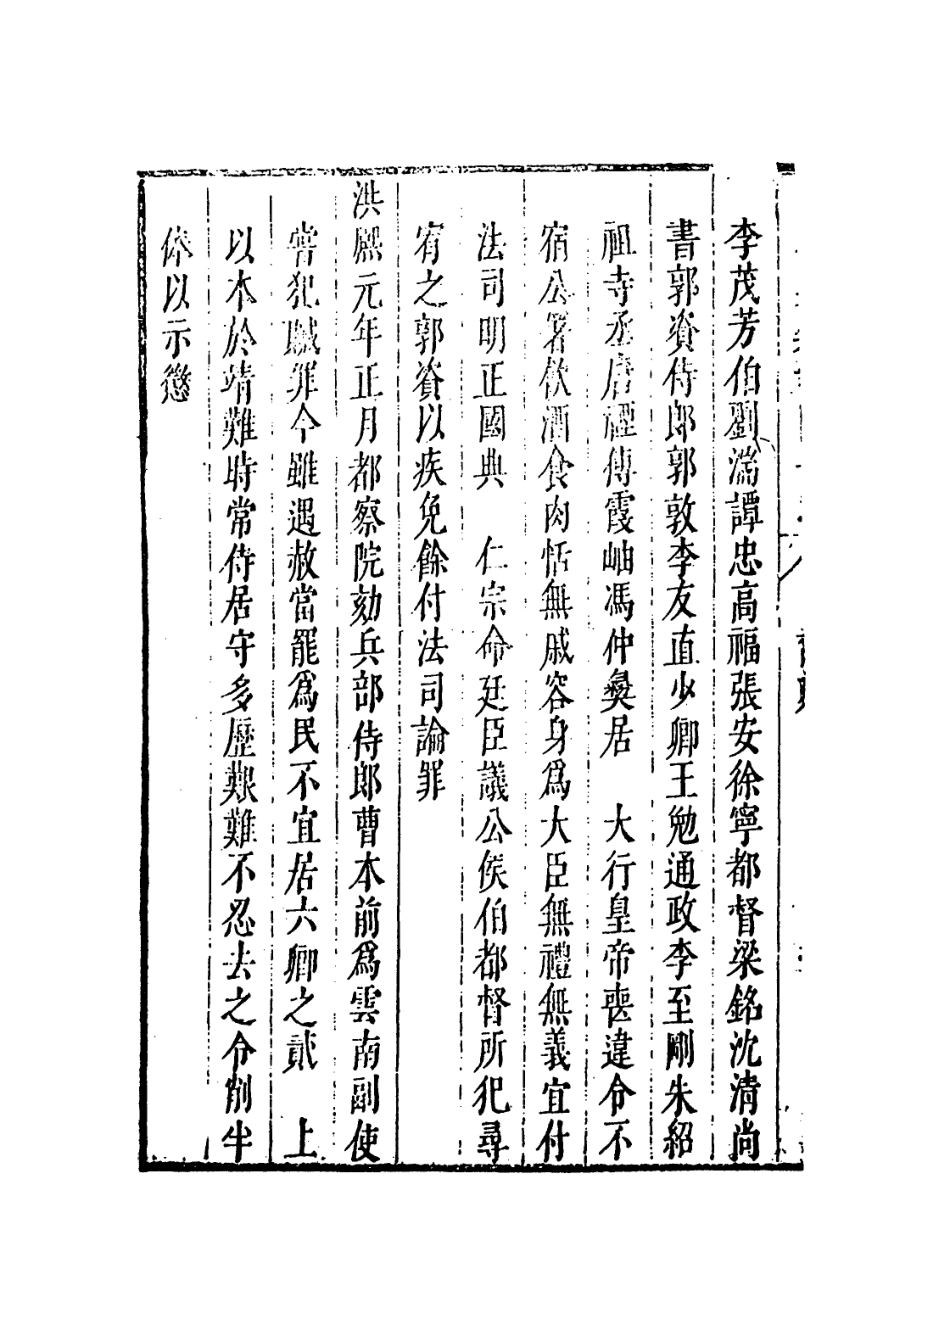 李茂芳伯劉湍譚忠高福張安徐寧都督梁銘沈清尚
書郭資侍郎郭敦李友直少卿王勉通政李至剛朱紹
祖寺丞唐禋傅霞岫馮仲彝居　大行皇帝喪違令不
宿公署飲酒食肉恬無戚容身爲大臣無禮無義宜付
法司明正國典　仁宗命廷臣議公侯伯都督所犯尋
宥之郭資以疾免餘付法司論罪
洪熙元年正月都察院劾兵部侍郎曹本前爲雲南副使
嘗犯贓罪今雖遇赦當罷爲民不宜居六卿之貳　上
以本於靖難時常侍居守多歷艱難不忍去之令削半
俸以示懲